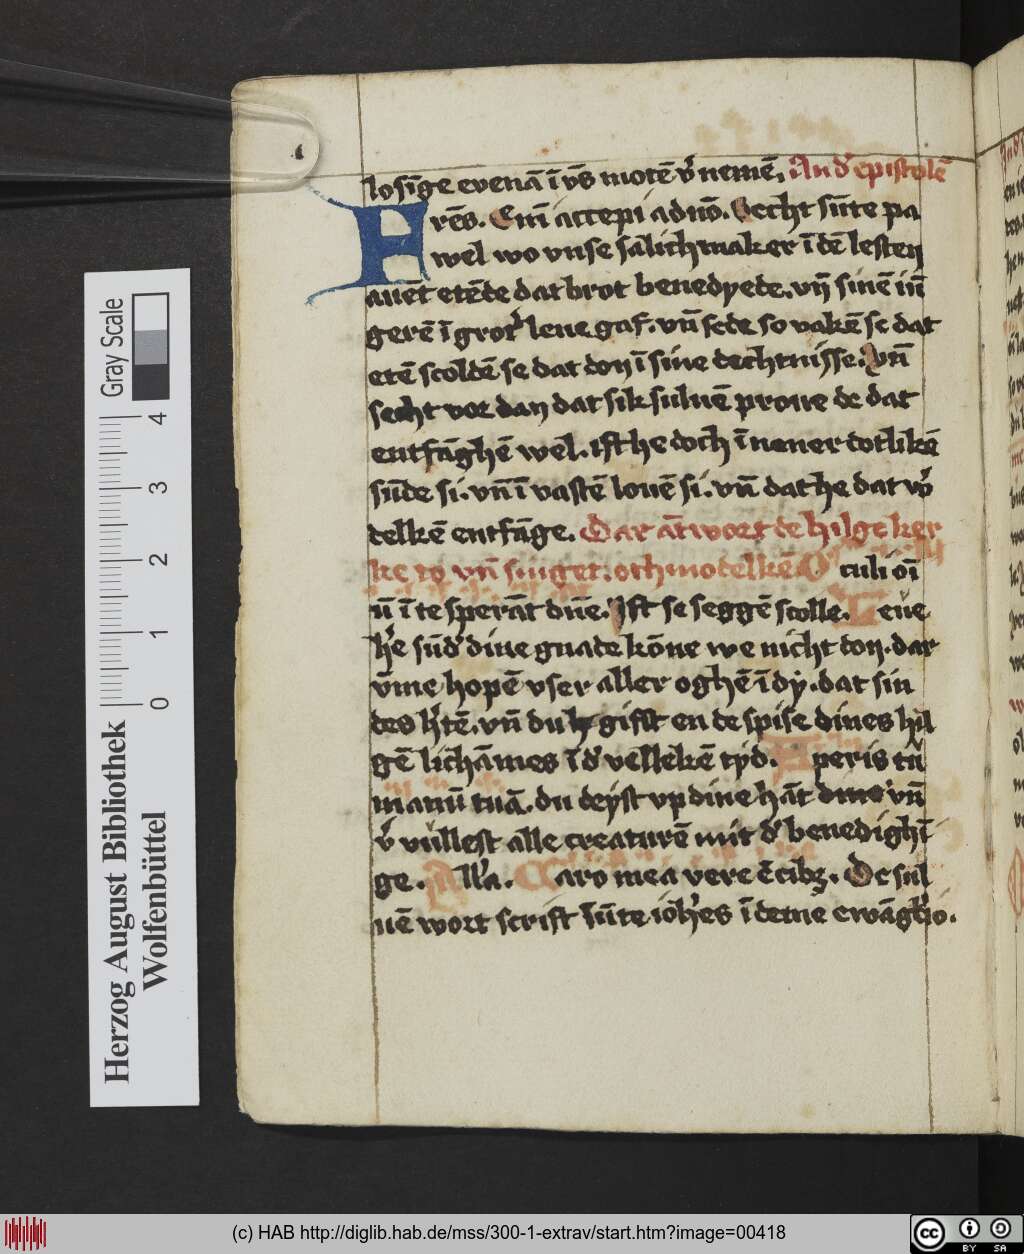 losīge evenā ī ỹs motē v̓nemē, An d̓ epistolē
Frēs. Em̄ accepi a dn̄o. Secht sūte pa
wel wo vnse salichmaker ī dē lesten
auēt etēde dat brot benedyede. vn̄ sinē iū
gerē ī grot̓ leue gaf. vn̄ sede so vakē se dat
etē scoldē se dat don ī sine dechtnisse. vn̄
secht vor dan dat sik suluē proue de dat
entfāghē wel. Ift he doch ī nener dotlikē
sūde si. vn̄ ī vastē louē si. vn̄ dat he dat v̓
delkē entfāge. Dar āt wort de hilge ker
ke to vn̄ singet. och modelke O culi oī
ū ī te sperāt dn̄e. Ift se seggē scolle. Leue
h̓e sūd̓ dine gnade kōne we nicht don. dar
v̄me hopē vser aller oghē ī dy. dat sin
des h̓tē. vn̄ du gifft en de spise dines hil
gē lichāmes ī d̓ vellekē tyd. A peris tū
manū tuā. du deyst vp dine hāt dine vn̄
v̓ vullest alle creaturē mit d̓ benedighī
ge. All̓a. Caro mea vere ē cibꝫ. De sul
uē wort scrift sūte ioh̓es ī deme ewāgl̓io.
Herzog August Bibliothek
Wolfenbüttel
Gray Scale
0 1 2 3 4
(c) HAB http://diglib.hab.de/mss/300-1-extrav/start.htm?image=00418
cc BY SA